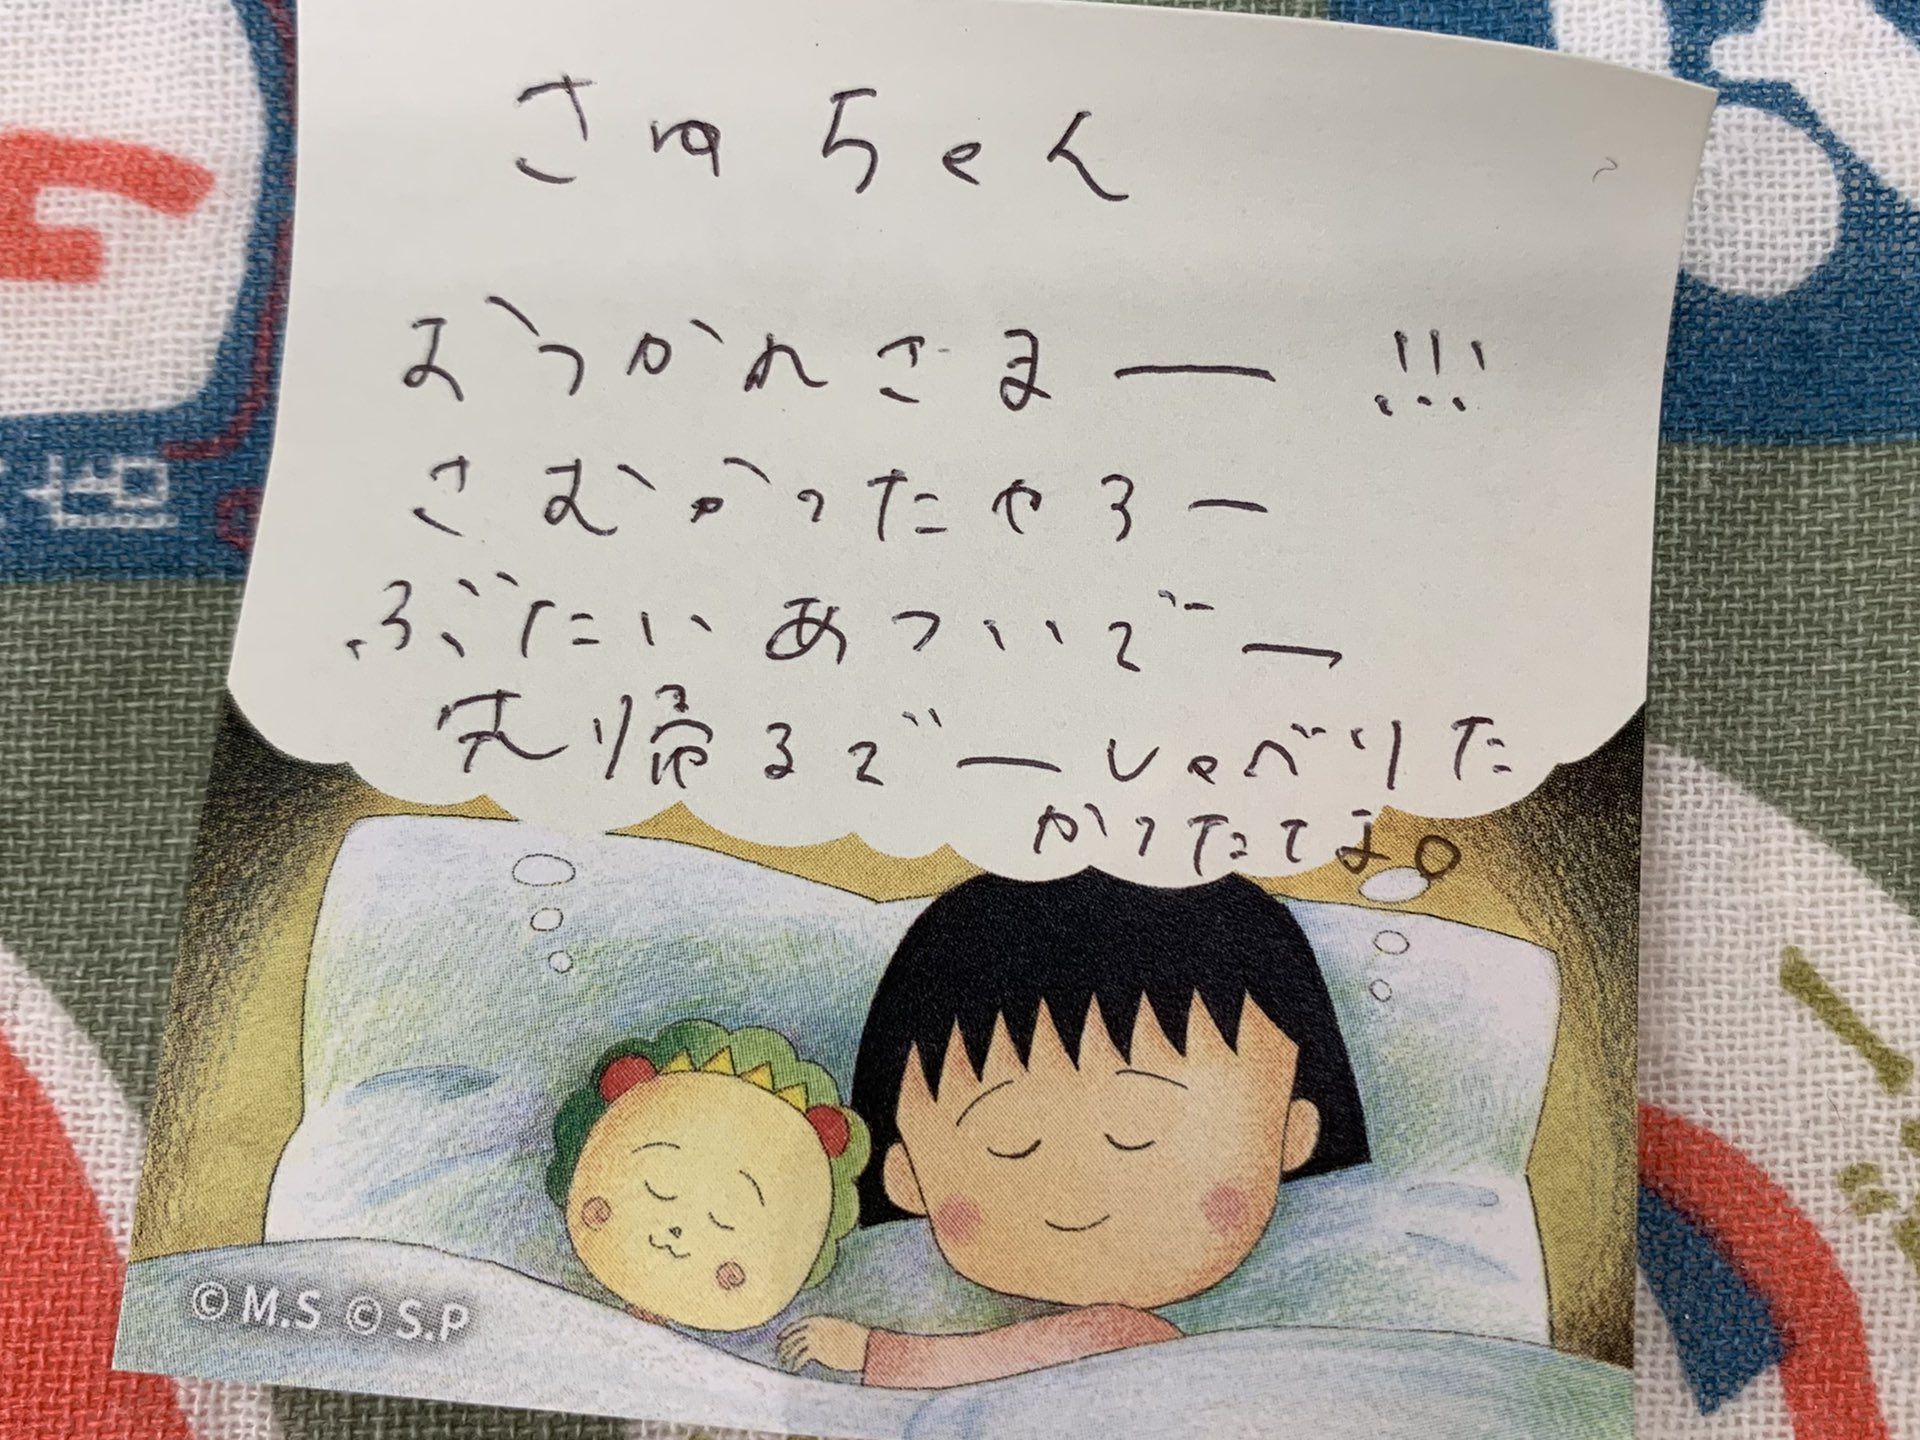 さゆちゃん
おつかれさまー!!!
さむかったやろー
ぶたいあついでー
先リ帰るでーしゃべりた
かったてよ。
©M.S ©S.P